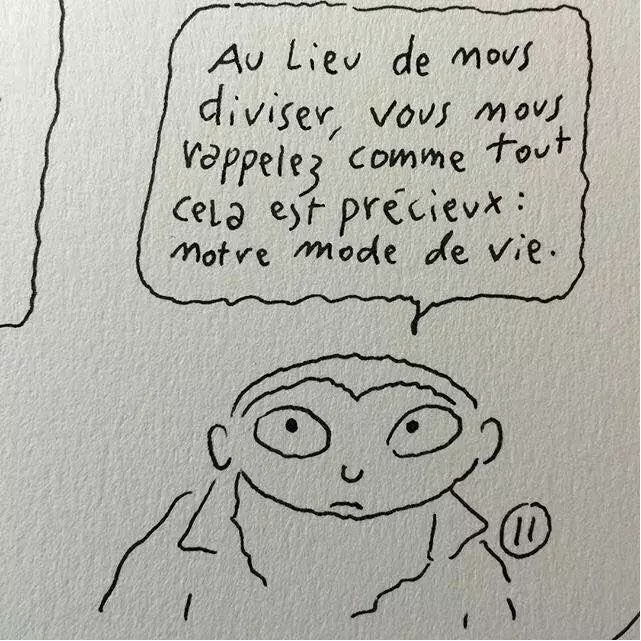 Au lieu de nous
diviser, vous nous
rappelez comme tout
cela est précieux:
notre mode de vie.
11